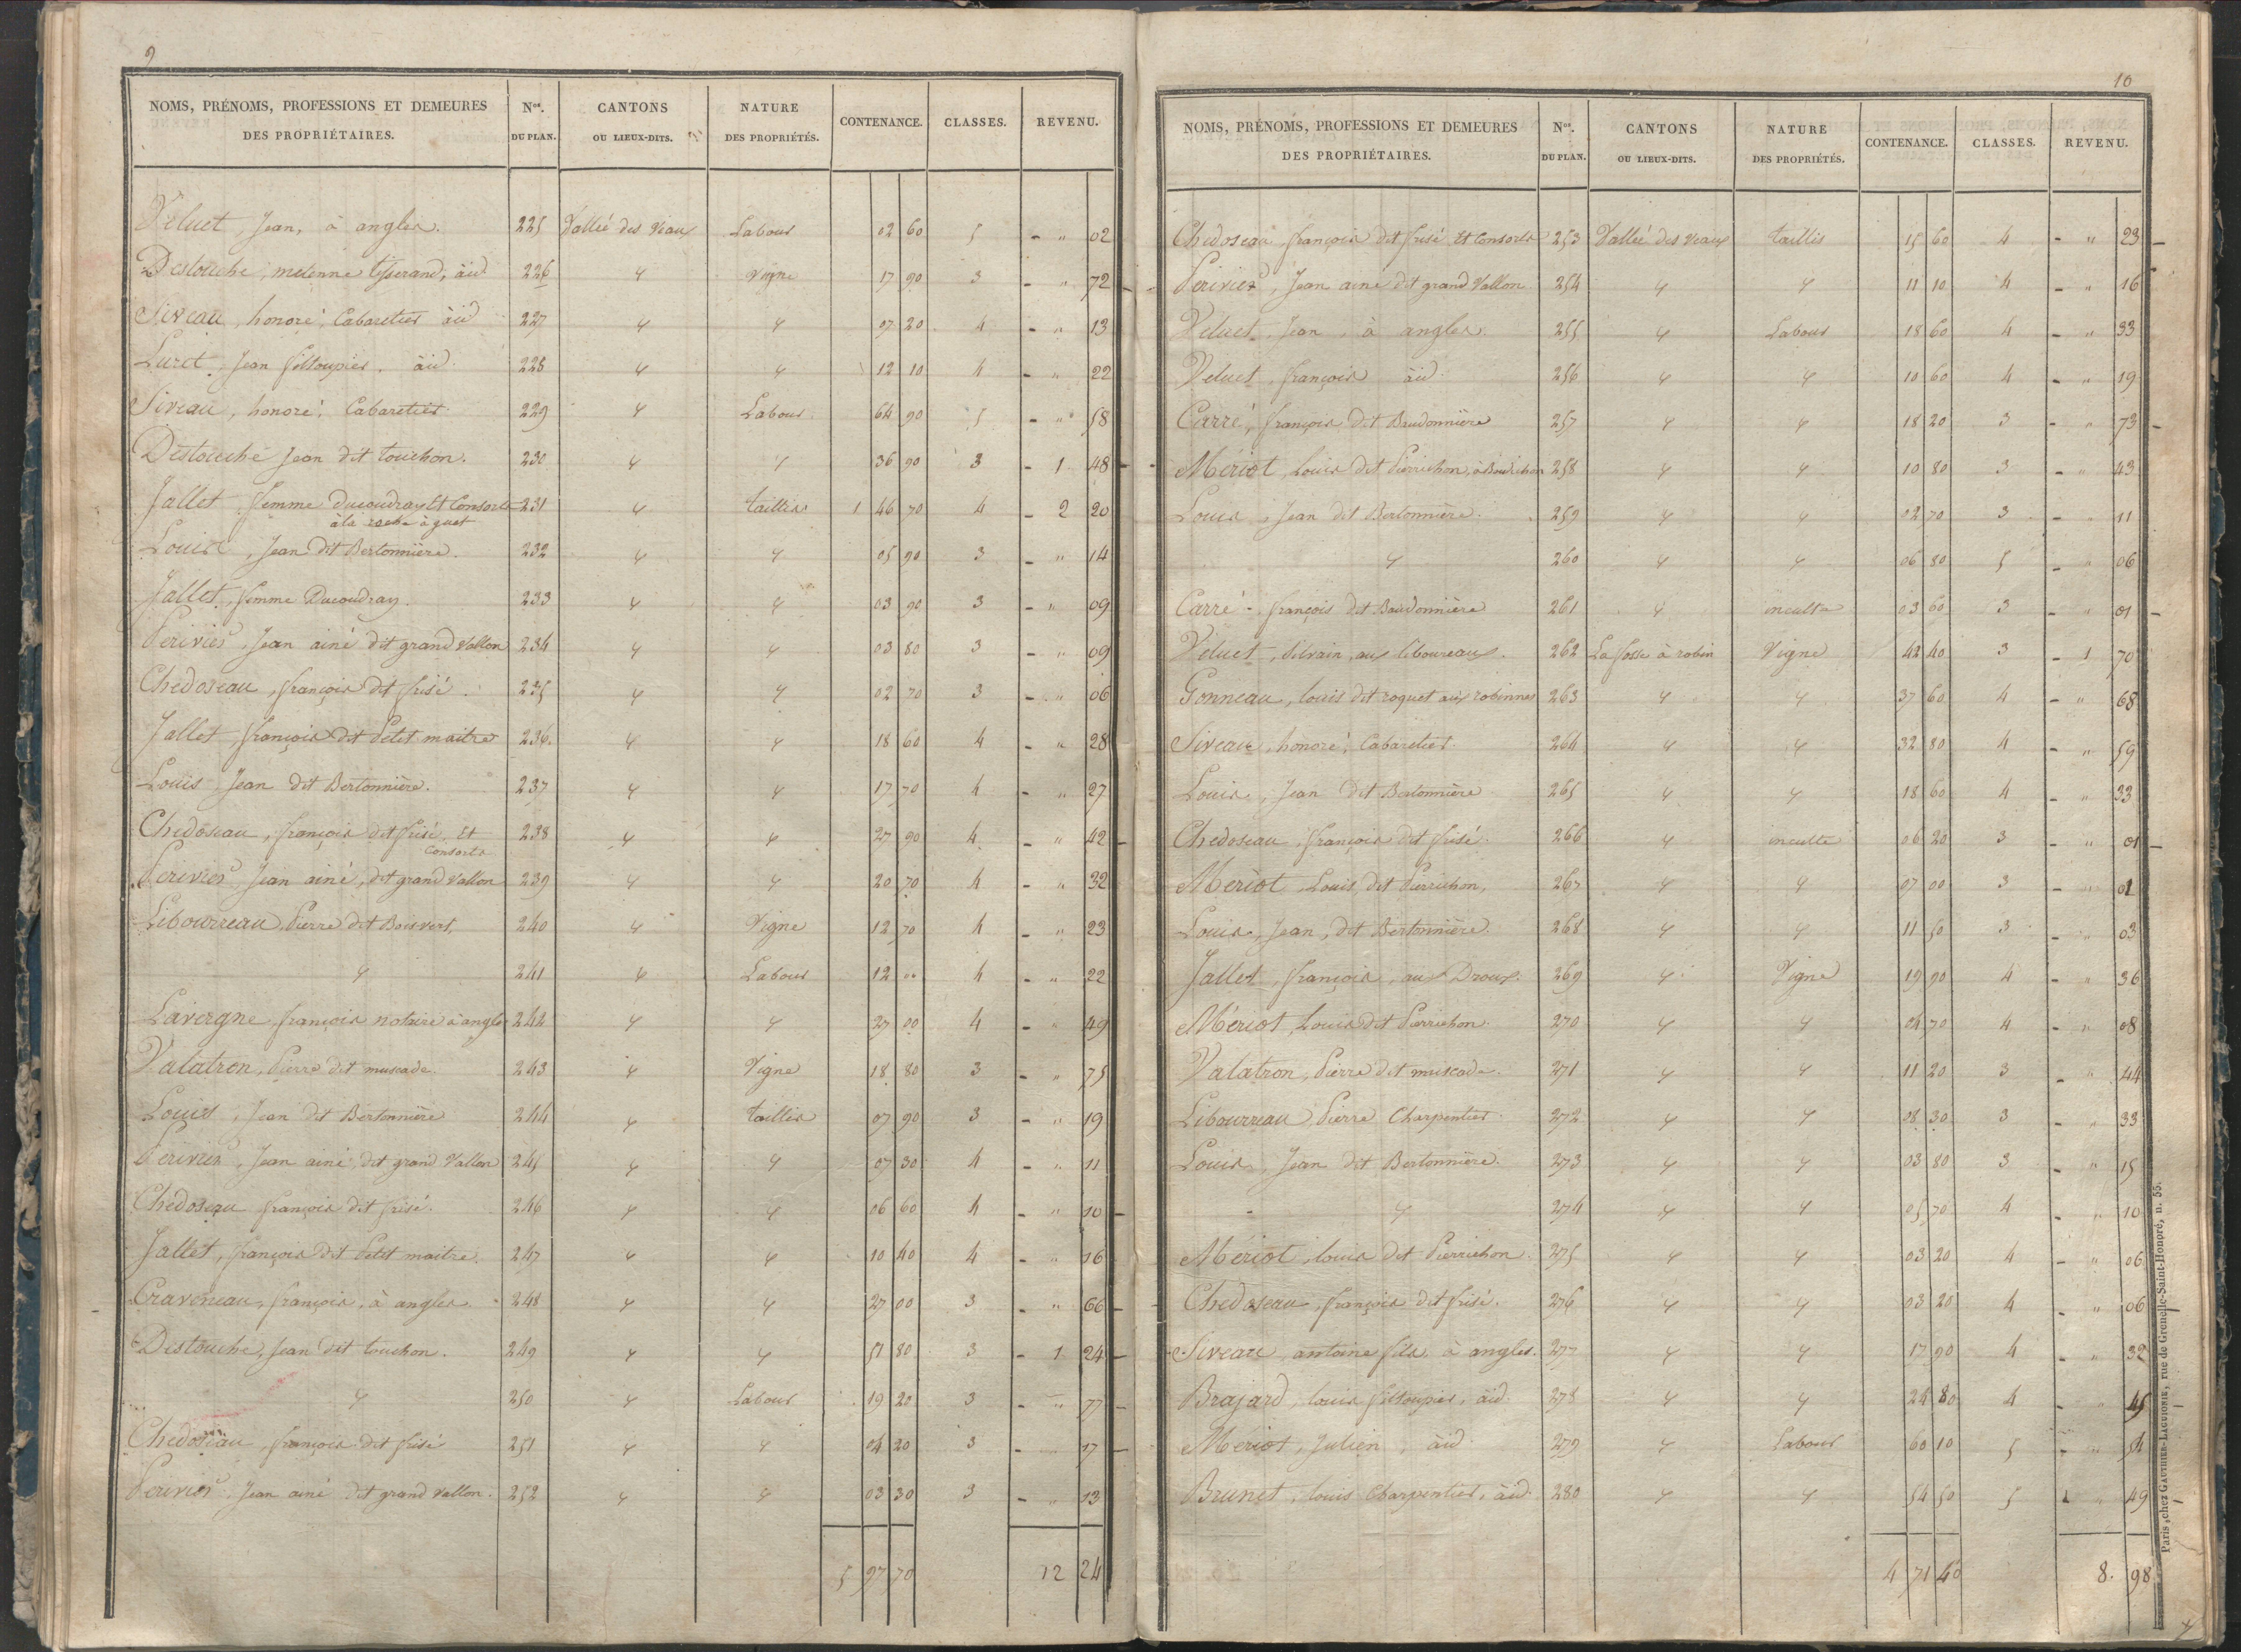 9
NOMS, PRÉNOMS, PROFESSIONS ET DEMEURES DES PROPRIÉTAIRES. Nos. DU PLAN. CANTONS OU LIEUX-DITS. NATURE DES PROPRIÉTÉS. CONTENANCE. CLASSES. REVENU.
Veluet, Jean, à angles. 225 Vallée des Veaux Labour 02 60 5 - " 02
Destouche, metenne tisserand, aid. 226 4 Vigne 17 90 3 - " 72
Siveau, honoré, Cabaretier aid 227 4 4 07 20 4 - " 13
Luret, Jean filtoupier, aid. 228 4 4 12 10 4 - " 22
Siveau, honoré, Cabaretier 229 4 Labour 64 90 5 - " 58
Destouche Jean dit touchon. 230 4 4 36 90 3 - 1 48
Jallet, femme Ducoudray Et Consorts 231 4 taillis 1 46 70 4 - 2 20
à la roche à guet
Louis, Jean dit Bertonnière. 232 4 4 05 90 3 - " 14
Jallet, femme Ducoudray. 233 4 4 03 90 3 - " 09
Perivier, Jean ainé dit grand Vallon 234 4 4 03 80 3 - " 09
Chedoseau, françois dit frisé. 235 4 4 02 70 3 - " 06
Jallet, françois dit Petit maitre 236. 4 4 18 60 4 - " 28
Louis Jean dit Bertonnière. 237 4 4 17 70 4 - " 27
Chedoseau, françois dit frisé, Et 238 4 4 27 90 4 - " 42
Consorts
Perivier Jean ainé, dit grand Vallon 239 4 4 20 70 4 - " 32
Libourreau, Pierre dit Boisvert, 240 4 Vigne 12 70 4 - " 23
4 241 4 Labour 12 " 4 - " 22
Lavergne, françois notaire à angles 242 4 4 27 00 4 - " 49
Valatron, Pierre dit muscade. 243 4 Vigne 18 80 3 - " 75
Louis, Jean dit Bertonnière 244 4 taillis 07 90 3 - " 19
Perivier, Jean ainé, dit grand Vallon 245 4 4 07 30 4 - " 11
Chedoseau françois dit frisé. 246 4 4 06 60 4 - " 10
Jallet, françois dit Petit maitre. 247 4 4 10 40 4 - " 16
Craveneau, françois, à angles. 248 4 4 27 00 3 - " 66
Destouche, Jean dit touchon. 249 4 4 51 80 3 - 1 24
4 250 4 Labour 19 20 3 - " 77
Chedoseau, françois dit frisé 251 4 4 04 20 3 - 17
Perivier. Jean ainé dit grand Vallon. 252 4 4 03 30 3 - " 13
5 97 70 12 24
10
NOMS, PRÉNOMS, PROFESSIONS ET DEMEURES DES PROPRIÉTAIRES. Nos. DU PLAN. CANTONS OU LIEUX-DITS. NATURE DES PROPRIÉTÉS. CONTENANCE. CLASSES. REVENU.
Chedoseau, françois dit frisé Et Consorts 253 Vallée des Veaux taillis 15 60 4 - " 23
Perivier, Jean ainé dit grand Vallon 254 4 4 11 10 4 - " 16
Veluet, Jean, à angles. 255 4 Labour 18 60 4 - " 33
Veluet, françois aid. 256 4 4 10 60 4 - " 19
Carré, françois dit Baudonnière 257 4 4 18 20 3 - " 73
Mériot, Louis dit Pierrichon, à 258 4 4 10 80 3 - " 43
Louis, Jean dit Bertonnière. 259 4 4 02 70 3 - " 11
4 260 4 4 06 80 5 - " 06
Carré, françois dit Baudonnière 261 4 inculte 03 60 3 - " 01
Veluet, Silvain, aux liboureaux. 262 La fosse à robin Vigne 42 40 3 - 1 70
Gonneau, louis dit roquet aux robinnes 263 4 4 37 60 4 - " 68
Siveau, honoré, Cabaretier 264 4 4 32 80 4 - " 59
Louis, Jean dit Bertonnière 265 4 4 18 60 4 - " 33
Chedoseau, françois dit frisé. 266 4 inculte 06 20 3 - " 01
Meriot, Louis, dit Pierrichon, 267 4 4 07 00 3 - " 01
Louis, Jean, dit Bertonnière. 268 4 4 11 50 3 - " 03
Jallet, françois, aux Droux. 269 4 Vigne 19 90 4 - " 36
Mériot, Louis dit Pierrichon. 270 4 4 04 70 4 - " 08
Valatron, Pierre dit muscade. 271 4 4 11 20 3 - " 44
Libourreau, Pierre Charpentier. 272 4 4 08 30 3 - " 33
Louis, Jean dit Bertonnière. 273 4 4 03 80 3 - " 15
4 274 4 4 05 70 4 - " 10
Mériot, louis dit Pierrichon. 275 4 4 03 20 4 - " 06
Chedoseau, françois dit frisé. 276 4 4 03 20 4 - " 06
Siveau, antoine fils à angles. 277 4 4 17 90 4 - " 32
Brajard, louis filtoupier, aid. 278 4 4 24 80 4 - " 45
Meriot, Julien, aid 279 4 Labour 60 10 5 - " 54
Brunet, louis Charpentier, aid. 280 4 4 54 50 5 " 49
4 71 40 8. 98
Paris, chez GAUTHIER-LAGUIONIE, rue de Grenelle-Saint-Honoré, n. 55.